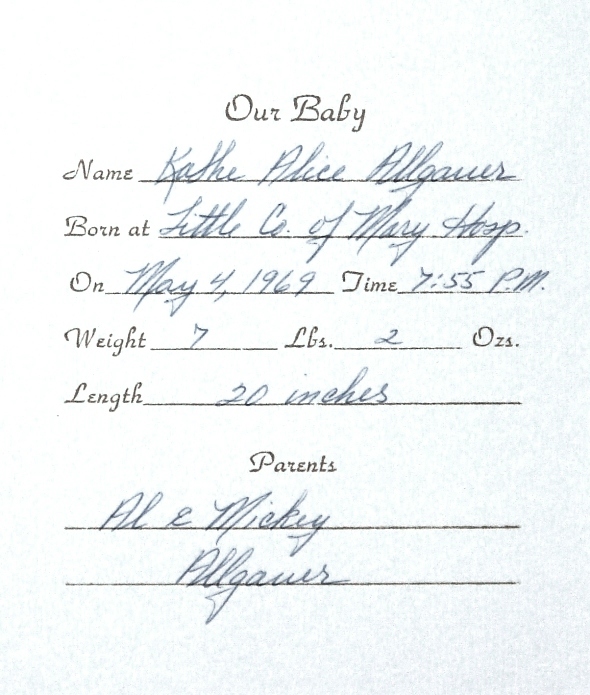 Our Baby
Name Kathe Alice Allgauer
Born at Little Co. of Mary Hosp.
On May 4, 1969 Time 7:55 P.M.
Weight 7 Lbs. 2 Ozs.
Length 20 inches
Parents
Al & Mickey
Allgauer